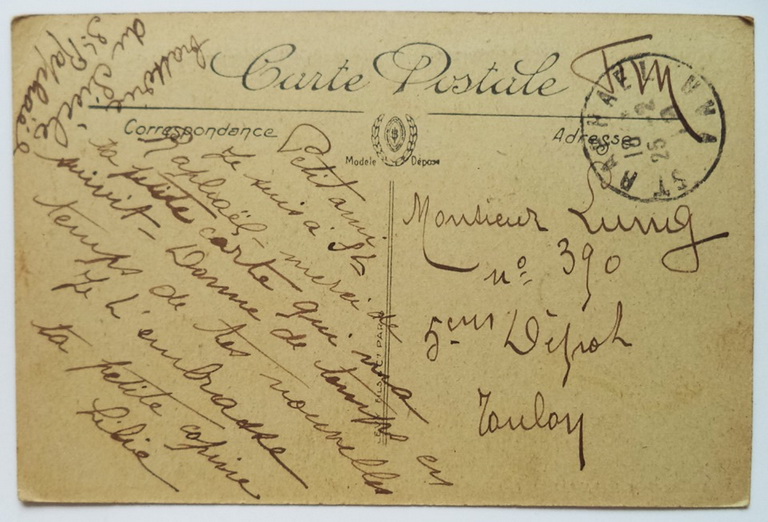 Carte Postale
Correspondance
Adresse
Modèle Déposé
FM
ST RAPHAEL
18
25
Petit ami
Je suis à St
Raphaël, merci de
ta petite carte qui m'a
suivit - Donne de temps en
temps de tes nouvelles
Je t'embrasse
ta petite copine
Lilie
du Siècle
St Raphaël
Monsieur Lunig
n° 390
5ème Dépôt
Toulon